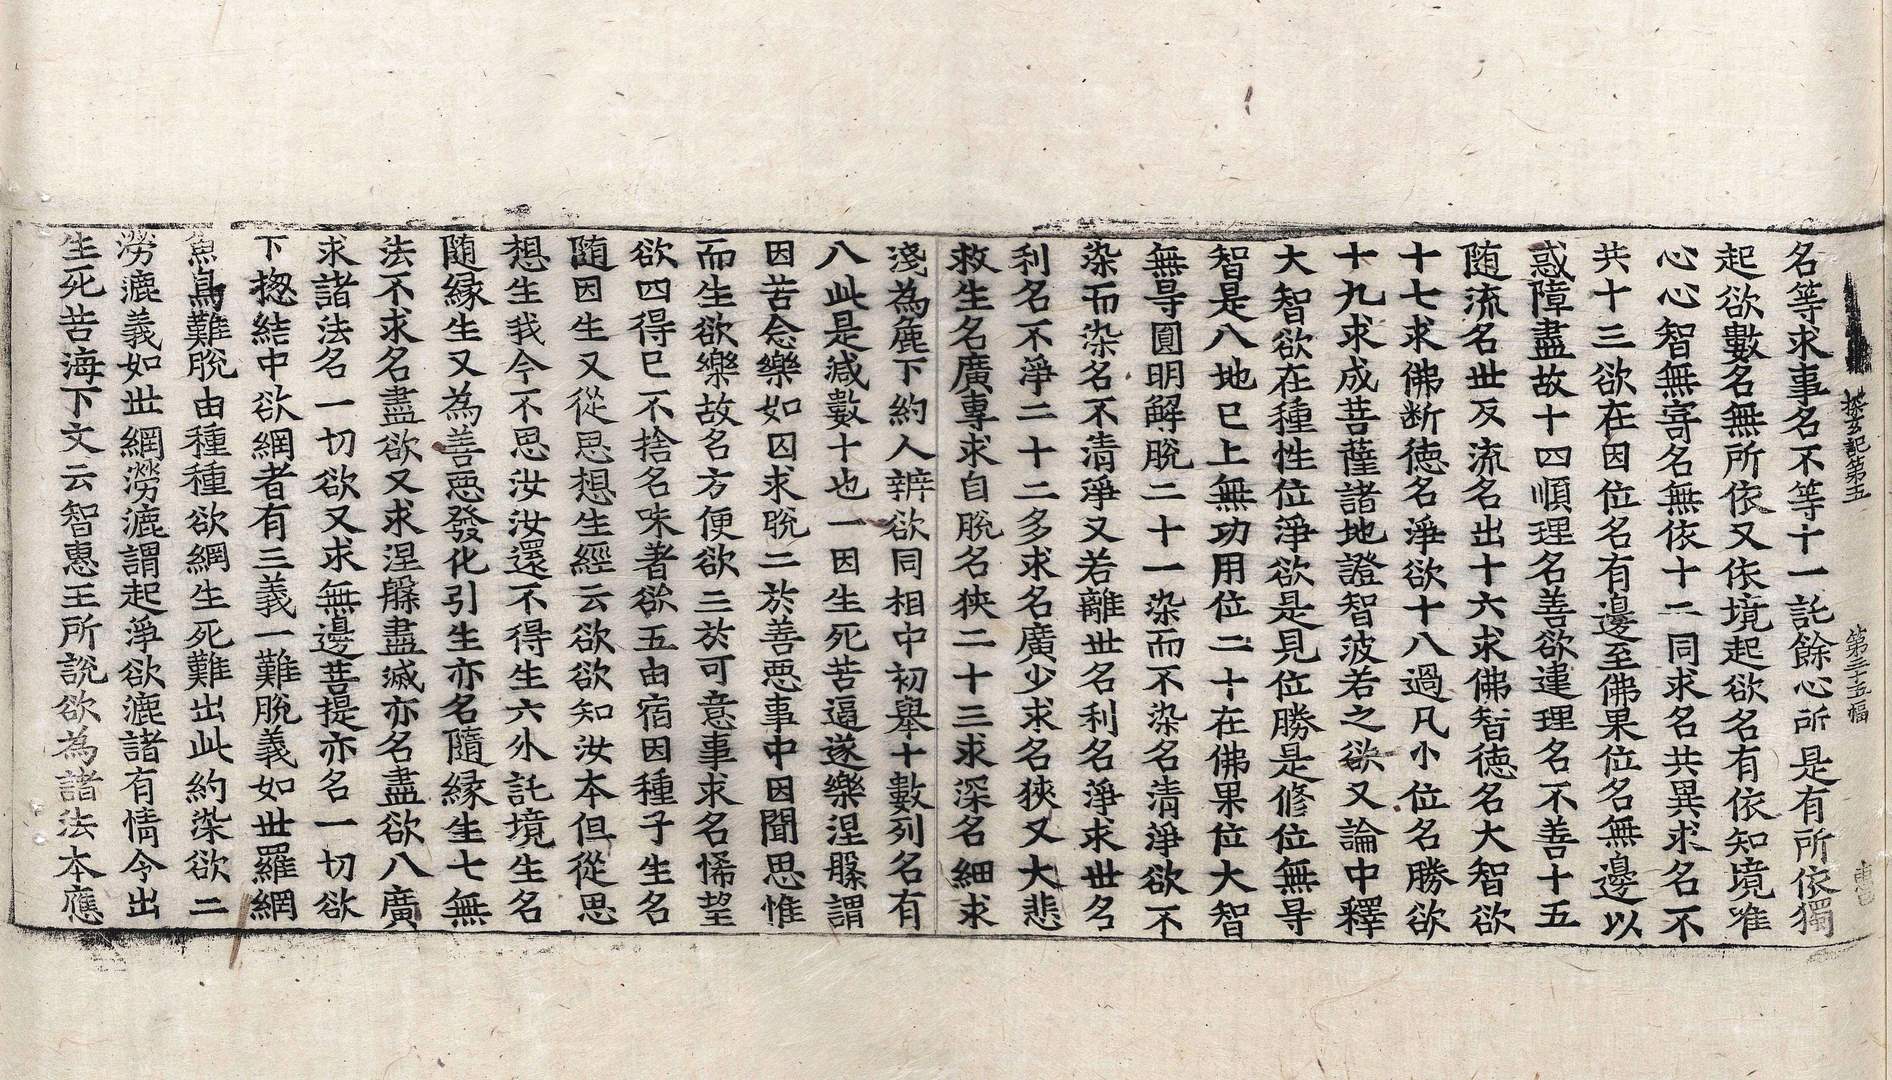 搜玄記第五 第三十五幅
名等求事名不等十一託餘心所是有所依獨
起欲數名無所依又依境起欲名有依知境唯
心心智無寄名無依十二同求名共異求名不
共十三欲在因位名有邊至佛果位名無邊以
惑障盡故十四順理名善欲違理名不善十五
随流名世反流名出十六求佛智德名大智欲
十七求佛断德名淨欲十八過凡小位名勝欲
十九求成菩薩諸地證智波若之欲又論中釋
大智欲在種性位淨欲是見位勝是修位無㝵
智是八地已上無功用位二十在佛果位大智
無㝵圓明解脫二十一染而不染名清淨欲不
染而染名不清淨又若離世名利名淨求世名
利名不淨二十二多求名廣少求名狹又大悲
救生名廣專求自脫名狹二十三求深名細求
淺為麁下約人辨欲同相中初舉十數列名有
八此是減數十也一因生死苦逼遂樂涅槃謂
因苦念樂如囚求脫二於善惡事中因聞思惟
而生欲樂故名方便欲三於可意事求名悕望
欲四得已不捨名味著欲五由宿因種子生名
隨因生又從思想生經云欲欲知汝本但從思
想生我今不思汝汝還不得生六外託境生名
隨緣生又為善惡發化引生亦名隨緣生七無
法不求名盡欲又求涅槃盡滅亦名盡欲八廣
求諸法名一切欲又求無邊菩提亦名一切欲
下揔結中欲網者有三義一難脫義如世羅網
魚鳥難脫由種種欲網生死難出此約染欲二
澇漉義如世網澇漉謂起淨欲漉諸有情令出
生死苦海下文云智惠王所說欲為諸法本應